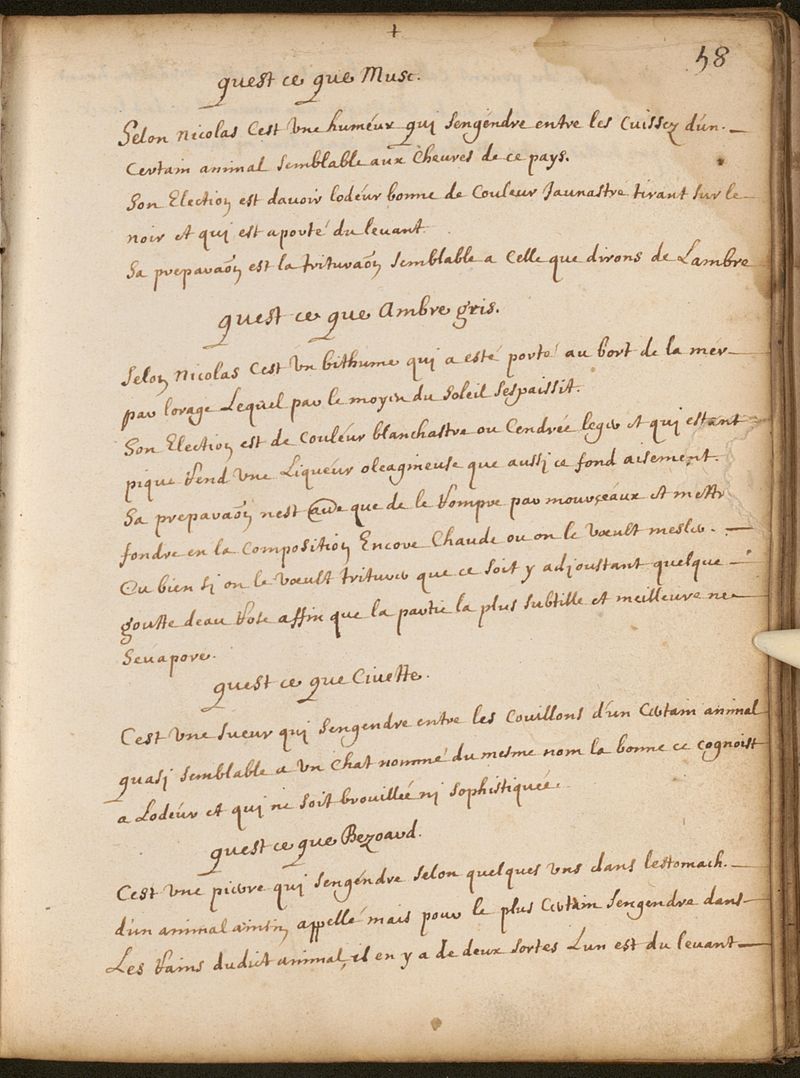 +
58
quest ce que Musc.
Selon nicolas Cest vne huméur qui sengendre entre les Cuissez d'un
Certain animal semblable aux Cheures de ce pays.
Son Election est dauoir lodéur bonne de Couleur Jaunastre tirant sur le
noir et qui est aporté du leuant
Sa preparaõn est la trituraõn semblable a Celle que dirons de Lambre
quest ce que Ambre gris.
Selon nicolas Cest vn bithume qui a esté porté au bort de la mer
par lorage Lequel par le moyen du Soleil sespaissit.
Son Election est de Couléur blanchastre ou Cendrée leger et qui estant
piqué rend vne Liqueur oleagineuse que aussi ce fond aisement.
Sa preparaõn nest que de le rompre par mourceaux et mettr
fondre en la Composition Encore Chaude ou on le vœult mesler.
Ou bien si on le vœult triturer que ce soit y adjoustant quelque
goutte deau rose affin que la partie la plus subtille et meilleure ne
Seuapore.
quest ce que Ciuette.
Cest vne sueur qui sengendre entre les Couillons d'un Certain animal
quasj semblable a vn Chat nommé du mesme nom la bonne ce cognoist
a Lodéur et qui ne soit brouillée nj sophistiquée.
quest ce que Bezoard.
Cest vne pierre qui sengéndre selon quelques vns dans lestomach.
d'un animal ainsin appellé mais pour le plus Certain sengendre dans
Les rains dudict animal, il en y a de deux sortes Lun est du leuant